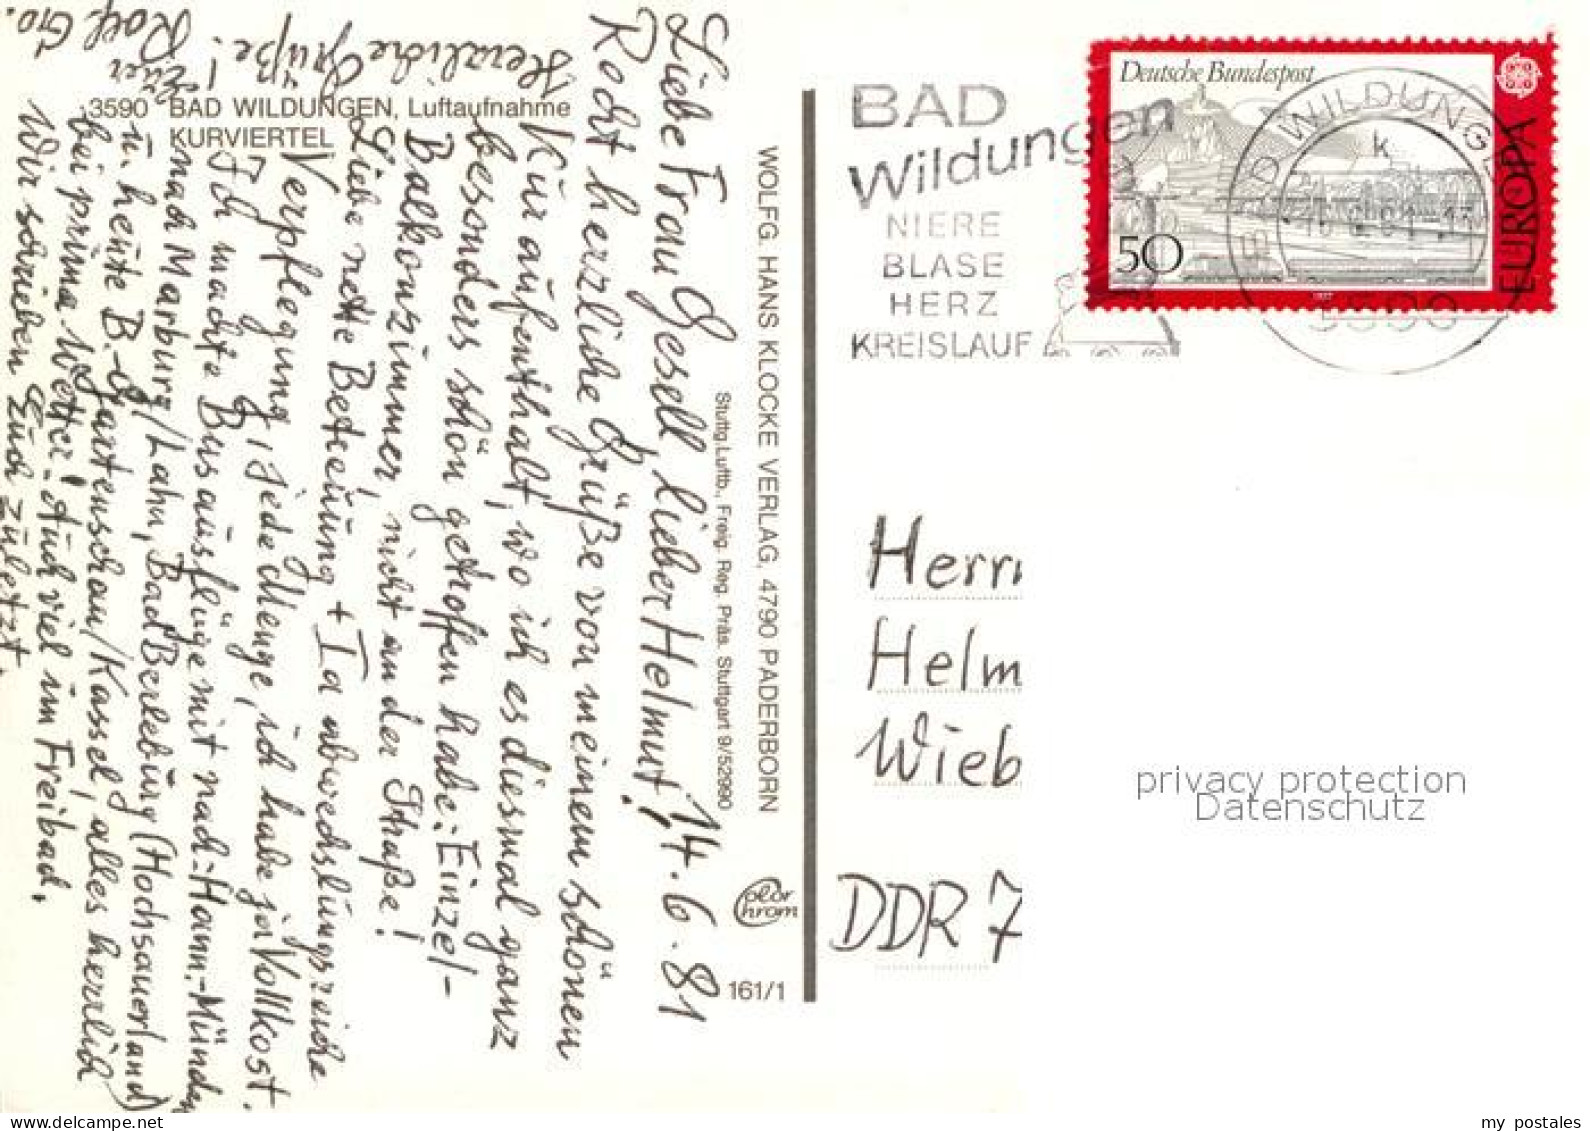 3590 BAD WILDUNGEN, Luftaufnahme
KURVIERTEL
14.6.81
Liebe Frau Gesell, lieber Helmut!
Recht herzliche Grüße von meinem schönen
Kuraufenthalt, wo ich es diesmal ganz
besonders schön getroffen habe: Einzel-
Balkonzimmer, nicht an der Straße!
Liebe nette Betreuung + Ia abwechslungsreiche
Verpflegung, jede Menge, ich habe ja Vollkost.
Ich machte Busausflüge mit nach: Hann.-Münden
nach Marburg/Lahn, Bad Berleburg (Hochsauerland)
u. heute B.-Gartenschau/Kassel, alles herrlich
bei prima Wetter. Auch viel im Freibad.
Wir schrieben Euch zuletzt.
Herzliche Grüße!
Euer Rolf Go.
WOLFG. HANS KLOCKE VERLAG, 4790 PADERBORN
Stuttg. Luftb., Freig. Reg. Präs. Stuttgart 9/52990
Color
Chrom
161/1
BAD
Wildungen
NIERE
BLASE
HERZ
KREISLAUF
Deutsche Bundespost
50
EUROPA
BAD WILDUNGEN
k
3590
Herrn
Helm
Wieb
DDR 7
privacy protection
Datenschutz
my postales
https://delcampe.net